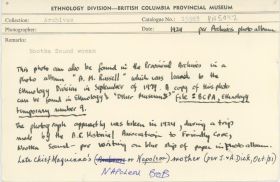 ETHNOLOGY DIVISION—BRITISH COLUMBIA PROVINCIAL MUSEUM
Collection: Archives
Catalogue No.: PN 5057
Photographer:
Date: 1924 per Archives photo album
Remarks:
Nootka Sound woman
This photo can also be found in the Provincial Archives in a
photo album "A. M. Russell" which was loaned to the
Ethnology Division in September of 1979. A copy of this plate
can be found in Ethnology's "Other Museums" File: BCPA, Ethnology
temporary number 9.
The photograph apparently was taken in 1924, during a trip
made by the B.C. Historical Association to Friendly Cove,
Nootka Sound - per writing on blue slip of paper in photo album.
Late Chief Maquinna's (Napoleon) mother (per J. + A. Dick, Oct/81)
NAPOLEON BOB